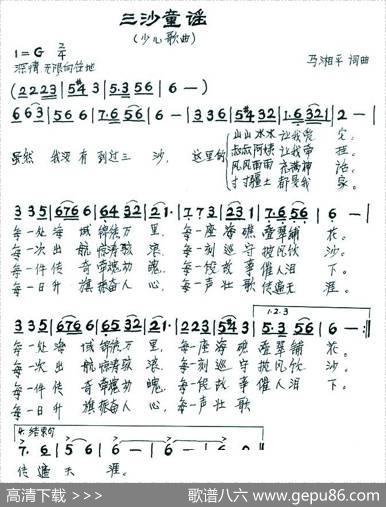 三沙童谣
(少儿歌曲)
1=G 2/4
深情 无限向往地
马湘平 词曲
(2 2 2 3 | 5 4 3 | 5·3 5 6 | 6 — )
6 6 3 | 5 6 6 | 7·6 5 6 | 6 — | 3 3 6 | 5 4 3 2 | 1·6 3 2 1 | 2 — |
虽然 我没有到过三 沙, 这里的
山山水水 让我爱 恋。
叔叔阿姨 让我牵 挂。
风风雨雨 充满神 话。
寸寸疆土 都是我 家。
3 3 5 | 6 7 6 6 | 6 4 3 2 | 2 1· | 7 7 3 | 2 3 1 | 7·6 5 6 | 6 — |
每一处 海 域 锦绣万 里, 每一座 海 礁 叠翠铺 花。
每一次 出 航 惊涛骇 浪, 每一刻 巡 守 披风饮 沙。
每一件 传 奇 带魂动 魄, 每一段 故 事 催人泪 下。
每一日 升 旗 振奋人 心, 每一声 壮 歌 传遍天 涯。
1. 2. 3
3 3 5 | 6 7 6 6 | 6 5 3 2 | 2 1· | 2 2 3 | 5 4 3 | 5·3 5 6 | 6 — :||
每一处 海 域 锦绣万 里, 每一座 海 礁 叠翠铺 花。
每一次 出 航 惊涛骇 浪, 每一刻 巡 守 披风饮 沙。
每一件 传 奇 带魂动 魄, 每一段 故 事 催人泪 下。
每一日 升 旗 振奋人 心, 每一声 壮 歌
4. 结束句
7· 6 | 5 6 | 6 — | 6 — | 6 0 ||
传遍 天 涯。
高清下载 >>>
歌谱八六 www.gepu86.com